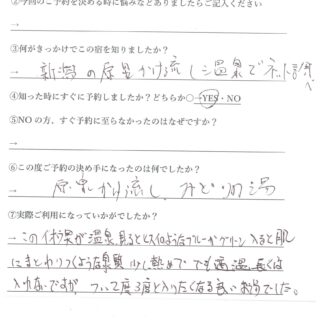 ②今回のご予約を決める時に悩みなどありましたらご記入ください
→
③何がきっかけでこの宿を知りましたか？
→ 新潟の源泉かけ流し温泉でネット
④知った時にすぐに予約しましたか？どちらか○→YES・NO
⑤NOの方、すぐ予約に至らなかったのはなぜですか？
→
⑥この度ご予約の決め手になったのは何でしたか？
→ 源泉かけ流し、みどりの湯
⑦実際ご利用になっていかがでしたか？
→ この 温泉、見ると ブルーかグリーン 入ると肌
にまとわりつくような泉質 少し熱めで でも 長くは
入れないですが、ついつい度々 入りたくなる良いお湯でした。